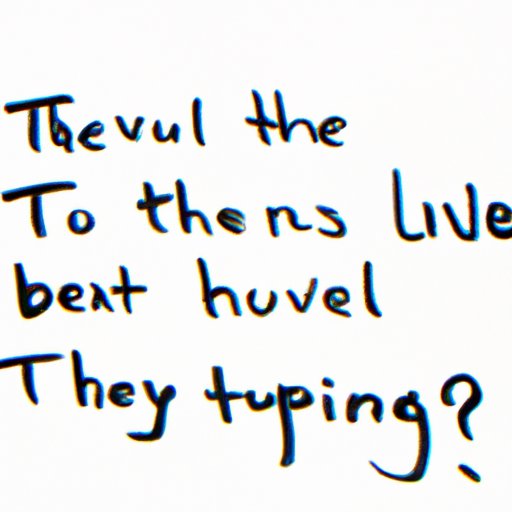 Thevul the
To thens Live
beat huvel
They tuping?